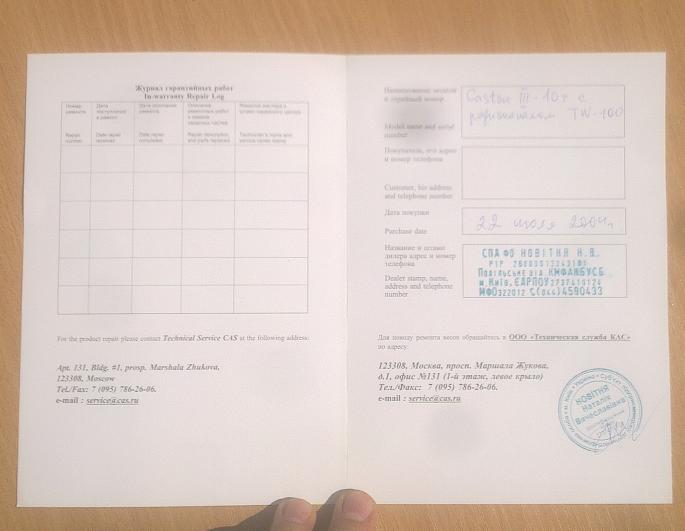 Журнал гарантийных работ
In-warranty Repair Log
Номер ремонта
Дата поступления в ремонт
Дата окончания ремонта
Описание ремонтных работ и замена запасных частей
Repair number
Date repair received
Date repair completed
Repair description and parts replaced
Technician's name and service center stamp
For the product repair please contact Technical Service CAS at the following address:
Apt. 131, Bldg. #1, prosp. Marshala Zhukova,
123308, Moscow
Tel./Fax: 7 (095) 786-26-06.
e-mail : service@cas.ru
Наименование модели
и серийный номер
Model name and serial
number
Caston III - 10т с
TW-100
Покупатель, его адрес
и номер телефона
Customer, his address
and telephone number
Дата покупки
Purchase date
22 июля 2004
Название и штамп
дилера адрес и номер
телефона
Dealer stamp, name,
address and telephone
number
СПД ФО НОВІТНЯ Н.В.
м.Київ,
(044)4590433
Для поводу ремонта весов обращайтесь в ООО «Техническая служба КАС»
по адресу:
123308, Москва, просп. Маршала Жукова,
д.1, офис №131 (1-й этаж, левое крыло)
Тел./Факс: 7 (095) 786-26-06.
e-mail : service@cas.ru
НОВІТНЯ
Наталія
Вячеславівна